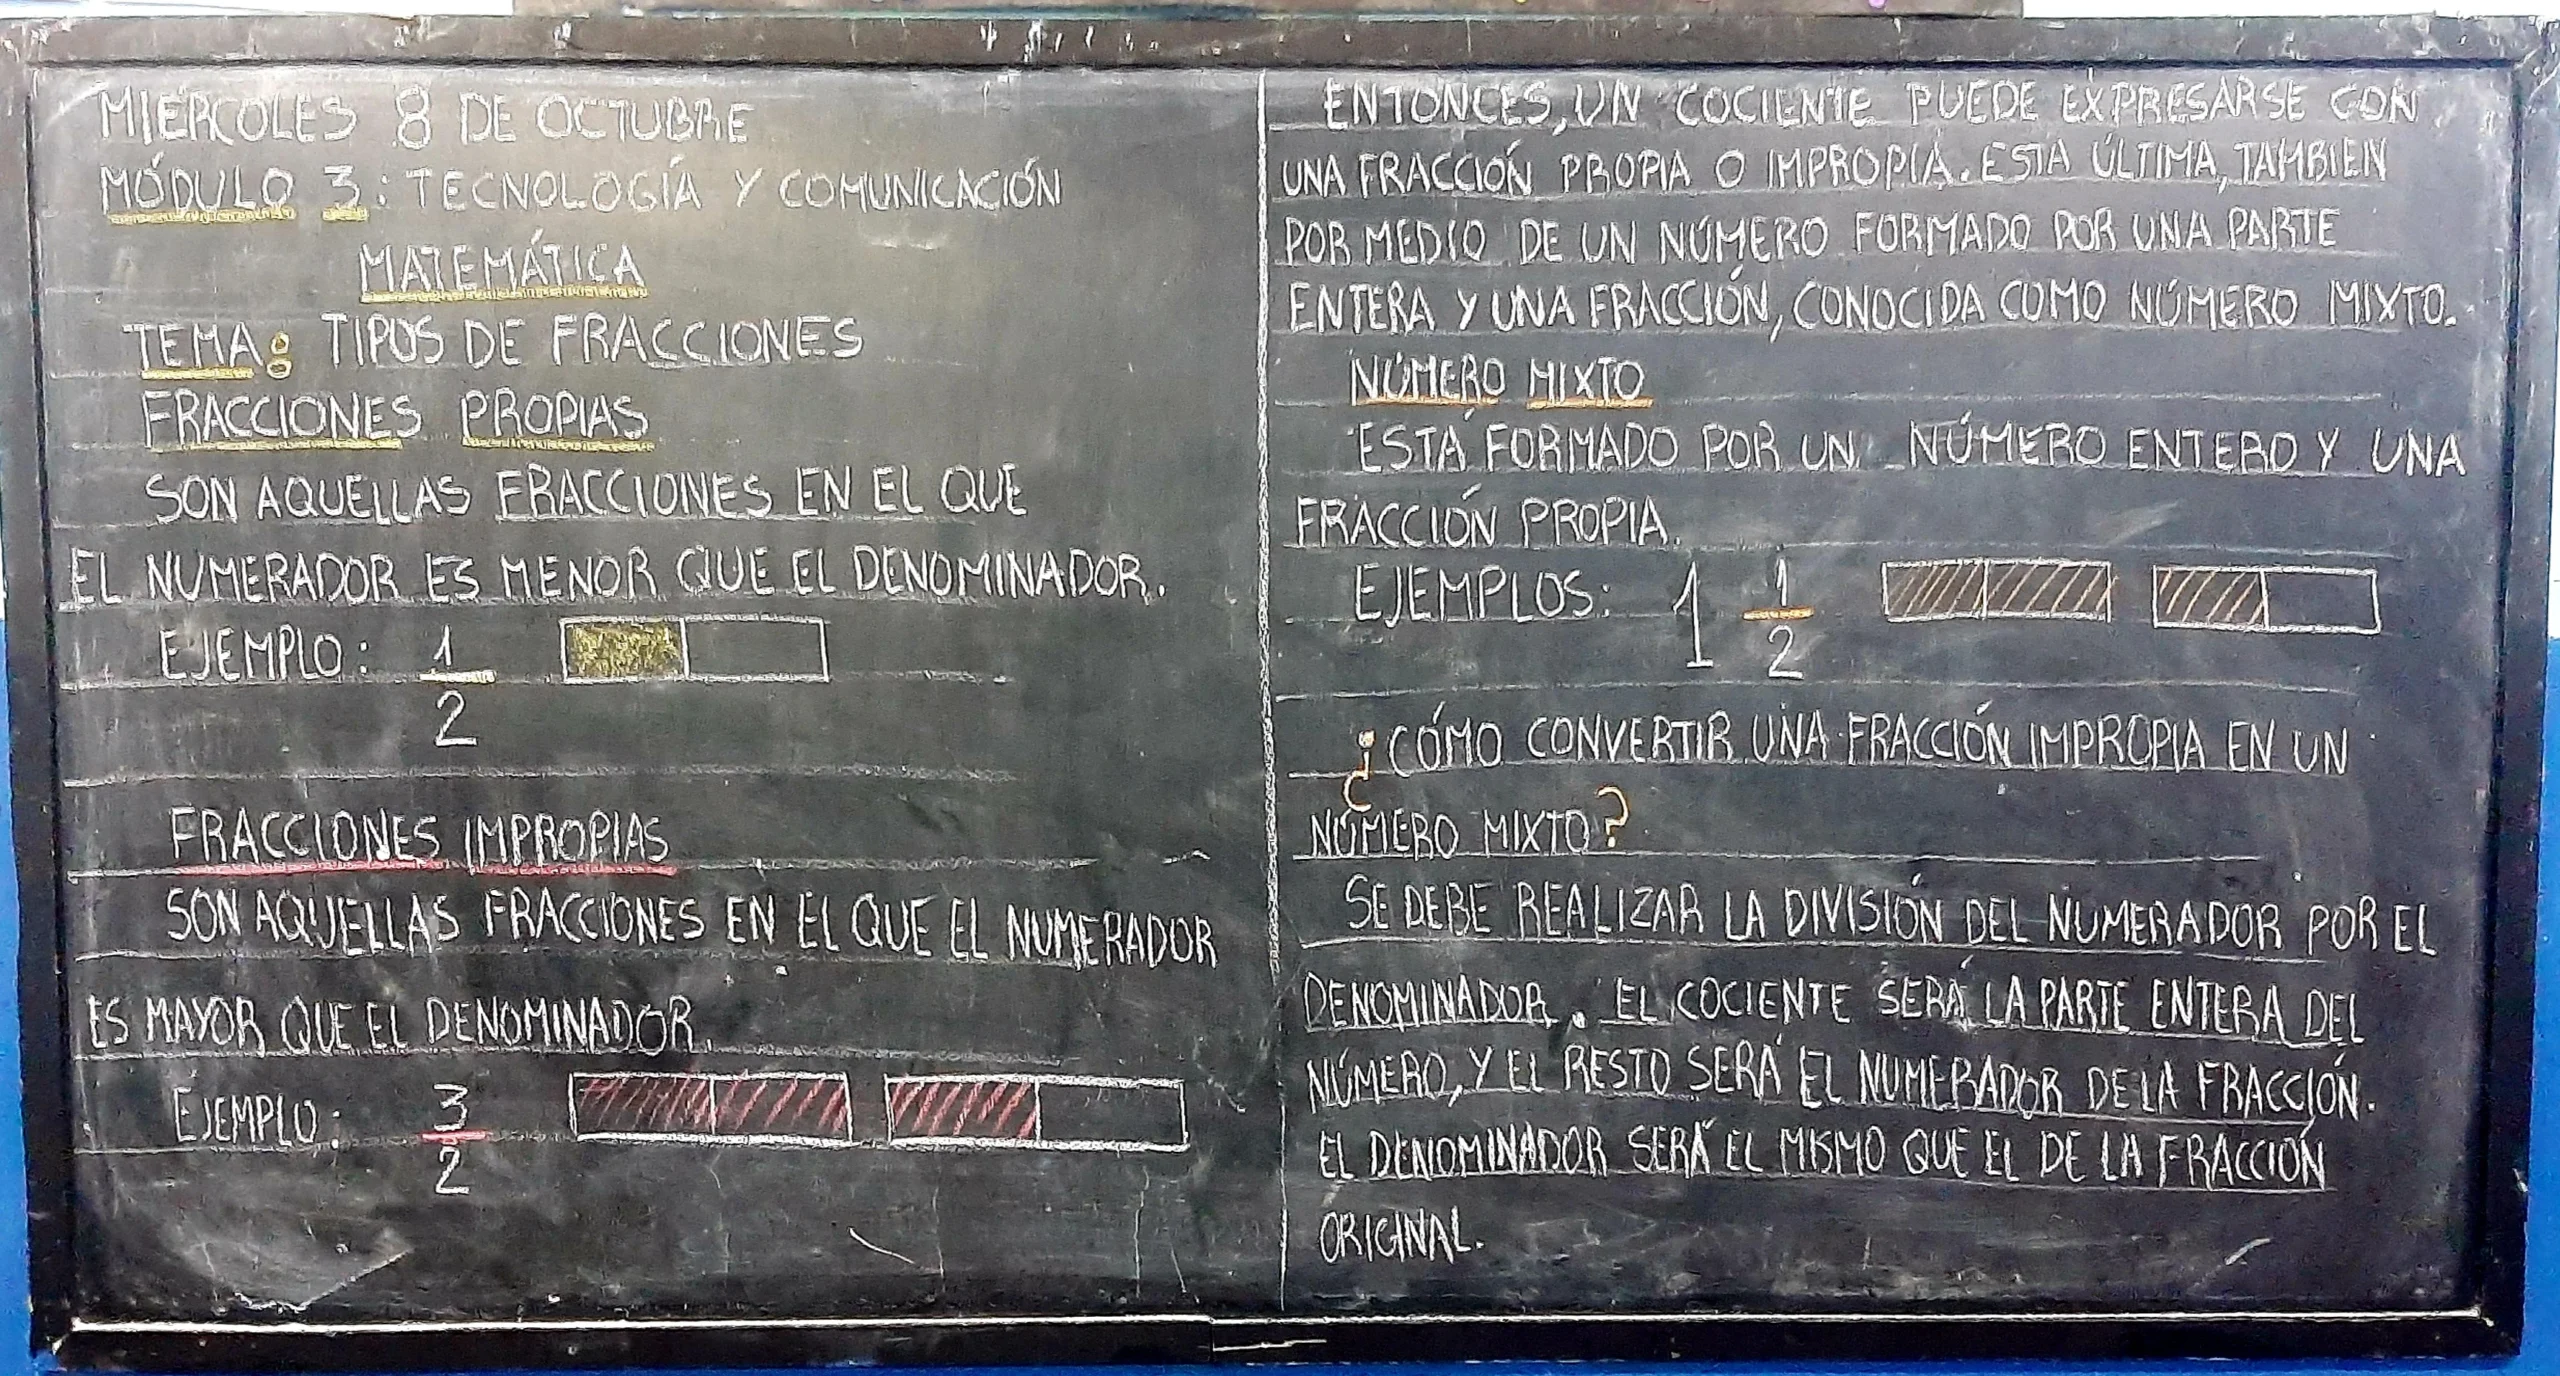 MIÉRCOLES 8 DE OCTUBRE
MÓDULO 3: TECNOLOGÍA Y COMUNICACIÓN
MATEMÁTICA
TEMA: TIPOS DE FRACCIONES
FRACCIONES PROPIAS
SON AQUELLAS FRACCIONES EN EL QUE
EL NUMERADOR ES MENOR QUE EL DENOMINADOR.
EJEMPLO: 1/2
FRACCIONES IMPROPIAS
SON AQUELLAS FRACCIONES EN EL QUE EL NUMERADOR
ES MAYOR QUE EL DENOMINADOR.
EJEMPLO: 3/2
ENTONCES, UN COCIENTE PUEDE EXPRESARSE CON
UNA FRACCIÓN PROPIA O IMPROPIA. ESTA ÚLTIMA, TAMBIEN
POR MEDIO DE UN NÚMERO FORMADO POR UNA PARTE
ENTERA Y UNA FRACCIÓN, CONOCIDA COMO NÚMERO MIXTO.
NÚMERO MIXTO
ESTÁ FORMADO POR UN NÚMERO ENTERO Y UNA
FRACCIÓN PROPIA.
EJEMPLOS: 1 1/2
¿CÓMO CONVERTIR UNA FRACCIÓN IMPROPIA EN UN
NÚMERO MIXTO?
SE DEBE REALIZAR LA DIVISIÓN DEL NUMERADOR POR EL
DENOMINADOR. EL COCIENTE SERÁ LA PARTE ENTERA DEL
NÚMERO, Y EL RESTO SERÁ EL NUMERADOR DE LA FRACCIÓN.
EL DENOMINADOR SERÁ EL MISMO QUE EL DE LA FRACCIÓN
ORIGINAL.